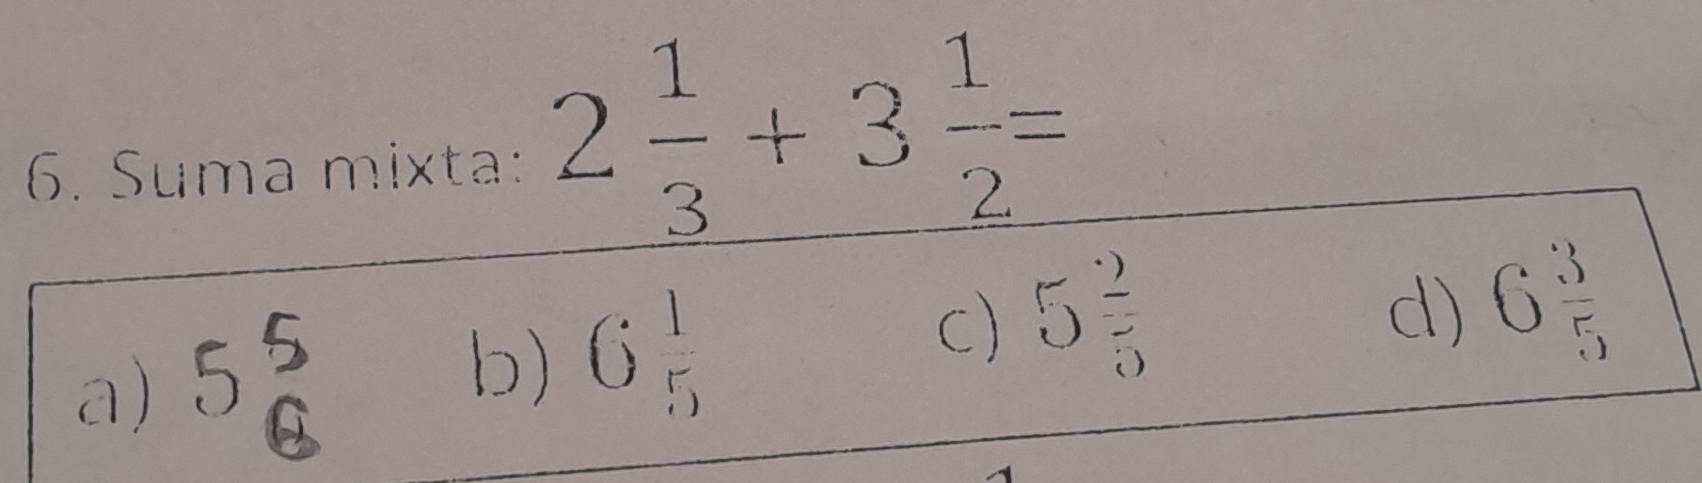 6. Suma mixta: 2 1/3 + 3 1/2 =
a) 5 5/6 b) 6 1/5 c) 5 2/5 d) 6 3/5